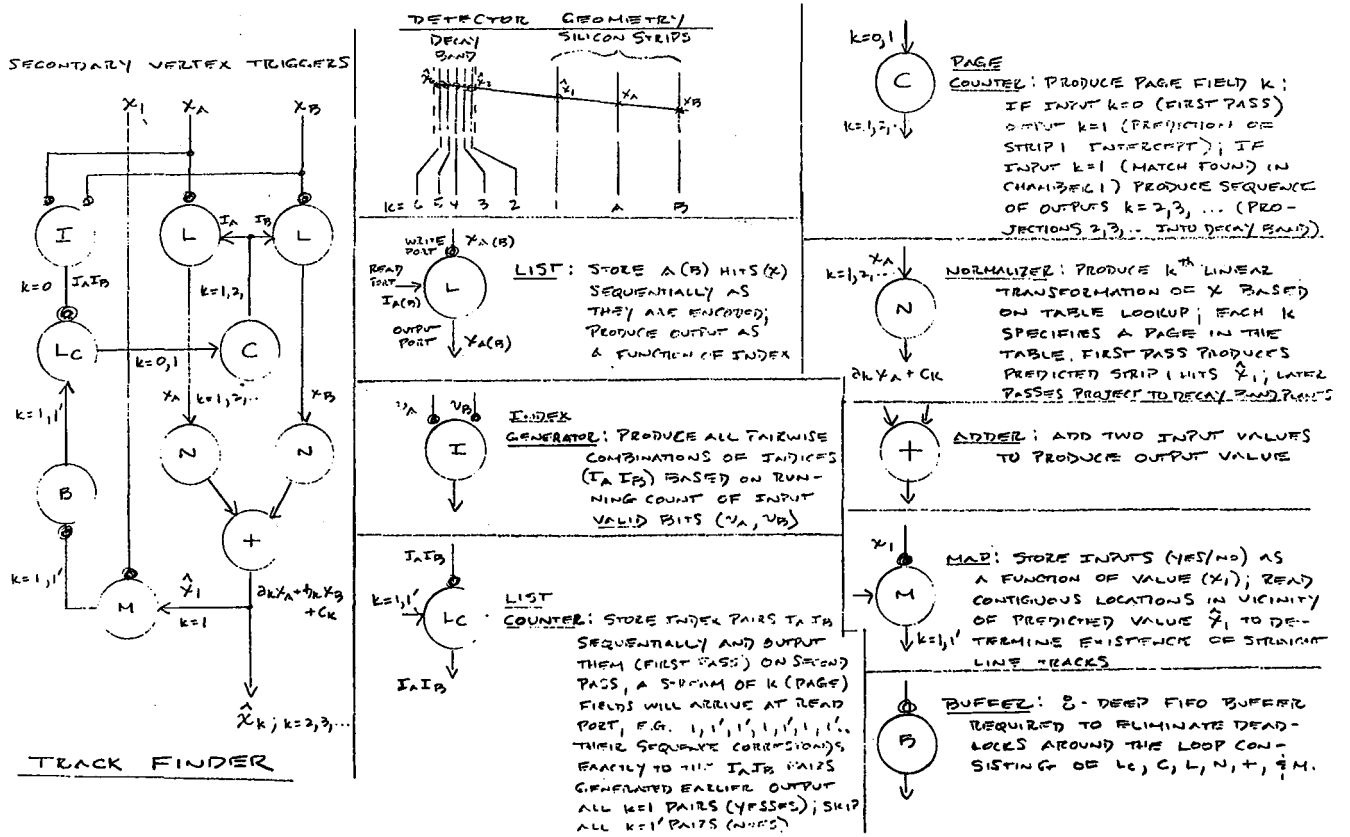 SECONDARY VERTEX TRIGGERS
x1 xA xB
I L IA IB L
k=0 IAIB k=1,2,
LC k=0,1 C
k=1,1' xA k=1,2,.. xB
B N N
+
k=1,1' M x̂1 akxA+bkxB
k=1 +ck
x̂k; k=2,3,...
TRACK FINDER
DETECTOR GEOMETRY
DECAY SILICON STRIPS
BAND
x̂2 x̂1 xA xB
k= 6 5 4 3 2 1 A B
WRITE xA(B)
PORT
READ
PORT
IA(B)
L
OUTPUT
PORT xA(B)
LIST: STORE A(B) HITS (x)
SEQUENTIALLY AS
THEY ARE ENCODED;
PRODUCE OUTPUT AS
A FUNCTION OF INDEX
vA vB
I
INDEX
GENERATOR: PRODUCE ALL PAIRWISE
COMBINATIONS OF INDICES
(IA IB) BASED ON RUN-
NING COUNT OF INPUT
VALID BITS (vA, vB)
IAIB
k=1,1'
LC
IAIB
LIST
COUNTER: STORE INDEX PAIRS IA IB
SEQUENTIALLY AND OUTPUT
THEM (FIRST PASS) ON SECOND
PASS, A STREAM OF K (PAGE)
FIELDS WILL ARRIVE AT READ
PORT, E.G. 1,1',1',1,1',1,1'..
THEIR SEQUENCE CORRESPONDS
EXACTLY TO THE IAIB PAIRS
GENERATED EARLIER OUTPUT
ALL k=1 PAIRS (YESSES); SKIP
ALL k=1' PAIRS (NOES)
k=0,1
C
k=1,2,..
PAGE
COUNTER: PRODUCE PAGE FIELD K;
IF INPUT k=0 (FIRST PASS)
OUTPUT k=1 (PREDICTION OF
STRIP 1 INTERCEPT); IF
INPUT k=1 (MATCH FOUND) IN
CHAMBER 1) PRODUCE SEQUENCE
OF OUTPUTS k=2,3, ... (PRO-
JECTIONS 2,3,.. INTO DECAY BAND)
xA
k=1,2,..
N
akxA+ck
NORMALIZER: PRODUCE kth LINEAR
TRANSFORMATION OF X BASED
ON TABLE LOOKUP; EACH k
SPECIFIES A PAGE IN THE
TABLE. FIRST PASS PRODUCES
PREDICTED STRIP 1 HITS x̂1; LATER
PASSES PROJECT TO DECAY BAND
+
ADDER: ADD TWO INPUT VALUES
TO PRODUCE OUTPUT VALUE
x1
M
k=1,1'
MAP: STORE INPUTS (YES/NO) AS
A FUNCTION OF VALUE (x1); READ
CONTIGUOUS LOCATIONS IN VICINITY
OF PREDICTED VALUE x̂1 TO DE-
TERMINE EXISTENCE OF STRAIGHT
LINE TRACKS
B
BUFFER: 8-DEEP FIFO BUFFER
REQUIRED TO ELIMINATE DEAD-
LOCKS AROUND THE LOOP CON-
SISTING OF LC, C, L, N, +, & M.